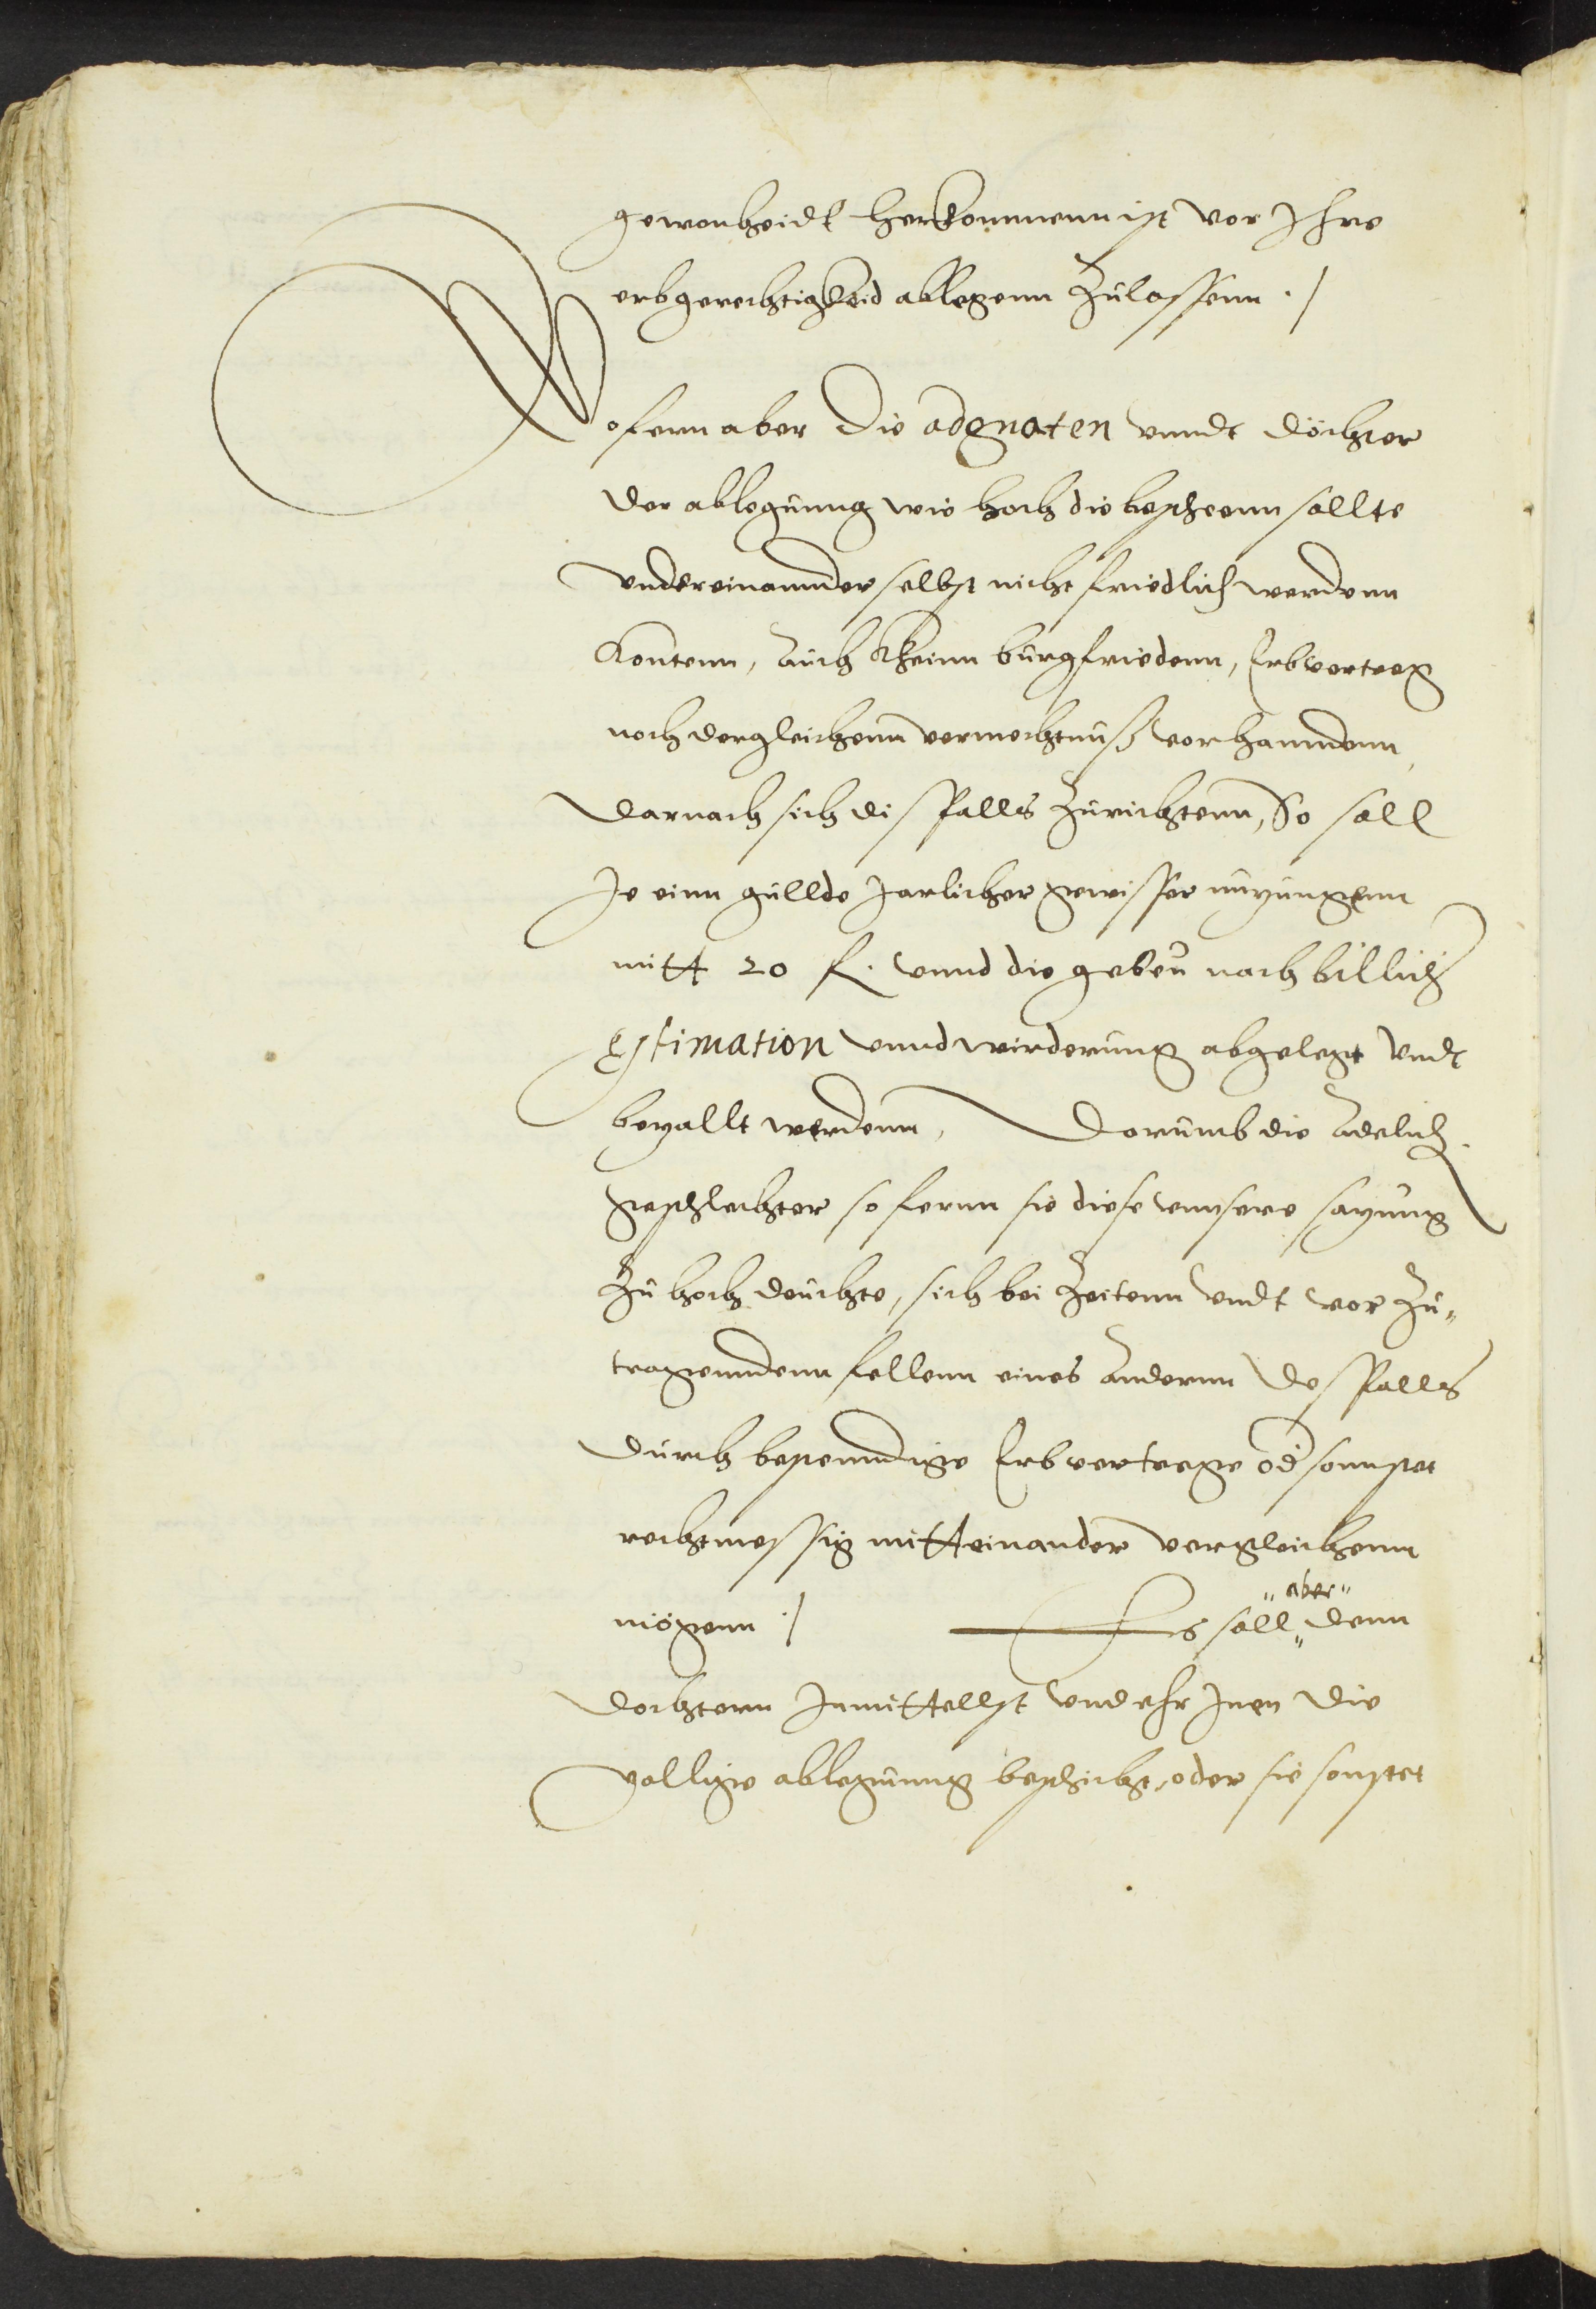 gewonheidt herkommenn ist vor Ihre
erbgerechtigkeid ablegenn Zulassenn ./
Wofernn aber die adgnaten vnndt döchter
der ablegunng wie hoch die bescheenn sollte
vndereinannder selbst nicht friedlich werdenn
Kontenn, auch Kheinn burgfriedenn, Erbvertrag
noch dergleichenn vermechtnuß vorhanndenn,
darnach sich disfalls Zurichtenn, So soll
Je einn gullde Jarlicher gewisser nuzungenn
mitt 20 f. vnnd die gebeu nach billich
Estimation vnnd wirderung abgelegt vndt
bezallt werdenn, Dorumb die adelich
geschlechter so fernn sie diese vnnsere sazung
Zu hoch deuchte, sich bei Zeitenn vndt vor Zu„
tragenndenn fellenn eines andernn desfalls
durch bestenndige Erbvertrege od sonnstet
rechtmessig mitteinander vergleichenn
mögenn ./ Es soll „aber“ denn
dochternn Inmittellst vnd ehr Inen die
vollige ablegunng beschicht, oder sie sonstet